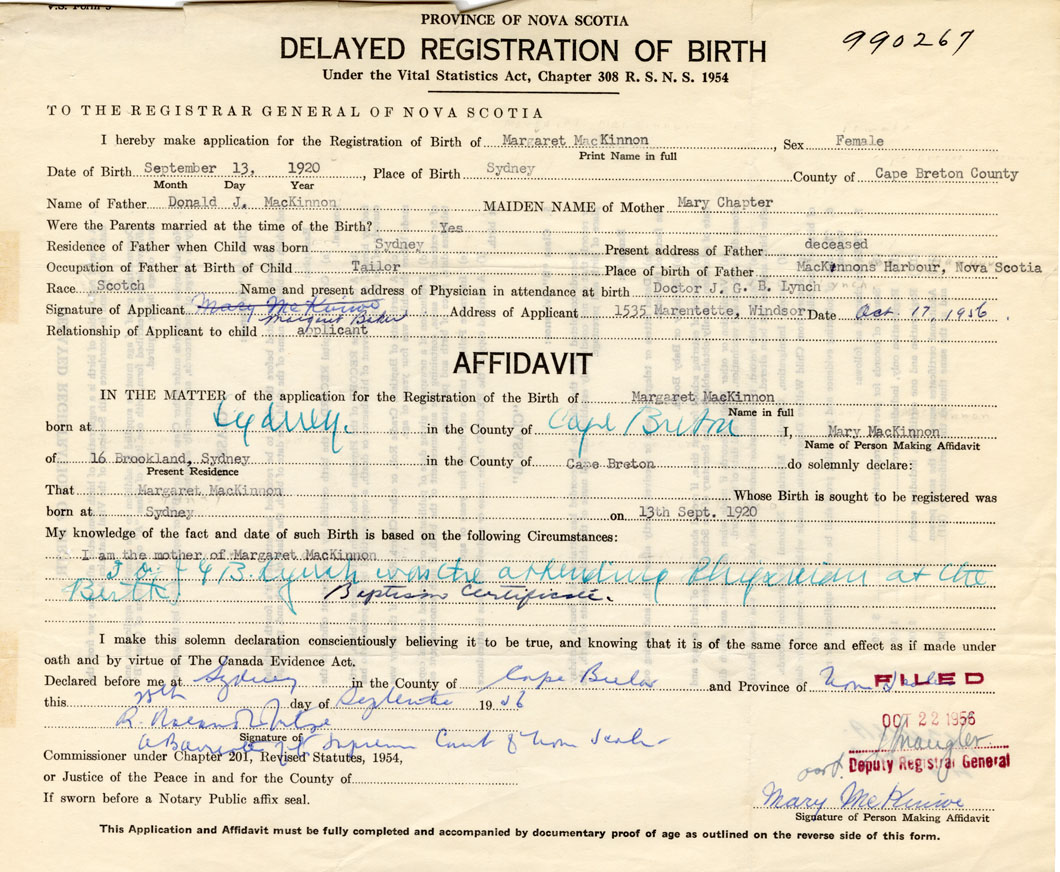 V.S. Form 5
PROVINCE OF NOVA SCOTIA
990267
DELAYED REGISTRATION OF BIRTH
Under the Vital Statistics Act, Chapter 308 R. S. N. S. 1954
TO THE REGISTRAR GENERAL OF NOVA SCOTIA
I hereby make application for the Registration of Birth of Margaret MacKinnon, Sex Female
Print Name in full
Date of Birth September 13, 1920, Place of Birth Sydney County of Cape Breton County
Month Day Year
Name of Father Donald J. MacKinnon MAIDEN NAME of Mother Mary Chapter
Were the Parents married at the time of the Birth? Yes
Residence of Father when Child was born Sydney Present address of Father deceased
Occupation of Father at Birth of Child Tailor Place of birth of Father MacKinnons Harbour, Nova Scotia
Race Scotch Name and present address of Physician in attendance at birth Doctor J. G. B. Lynch
Signature of Applicant Mary McKinnon Address of Applicant 1535 Marentette, Windsor Date Oct. 17, 1956
Margaret Baker
Relationship of Applicant to child applicant
AFFIDAVIT
IN THE MATTER of the application for the Registration of the Birth of Margaret MacKinnon
Name in full
born at Sydney. in the County of Cape Breton I, Mary MacKinnon
Name of Person Making Affidavit
of 16 Brookland, Sydney in the County of Cape Breton do solemnly declare:
Present Residence
That Margaret MacKinnon Whose Birth is sought to be registered was
born at Sydney on 13th Sept. 1920
My knowledge of the fact and date of such Birth is based on the following Circumstances:
I am the mother of Margaret MacKinnon
B. Lynch was the attending Physician at the
Birth.
Baptism Certificate.
I make this solemn declaration conscientiously believing it to be true, and knowing that it is of the same force and effect as if made under
oath and by virtue of The Canada Evidence Act.
Declared before me at Sydney in the County of Cape Breton and Province of Nova Scotia
FILED
this day of September 1956
OCT 22 1956
Signature of
A Barrister of the Supreme Court of Nova Scotia
Commissioner under Chapter 201, Revised Statutes, 1954,
Deputy Registrar General
or Justice of the Peace in and for the County of
If sworn before a Notary Public affix seal.
Mary McKinnon
Signature of Person Making Affidavit
This Application and Affidavit must be fully completed and accompanied by documentary proof of age as outlined on the reverse side of this form.